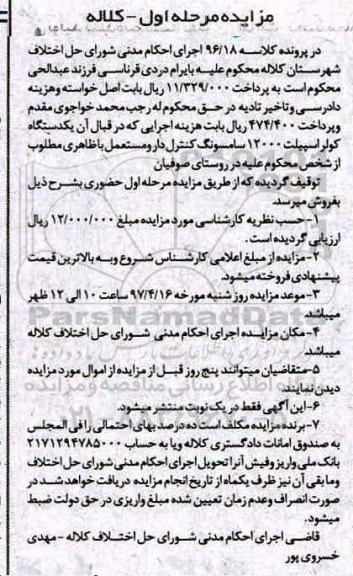 مزایده مرحله اول - کلاله
در پرونده کلاسه ۹۶/۱۸ اجرای احکام مدنی شورای حل اختلاف
شهرستان کلاله محکوم علیه بایرام دردی قرناسی فرزند عبدالحی
محکوم است به پرداخت ۱۱/۳۲۹/۰۰۰ ریال بابت اصل خواسته وهزینه
دادرسی و تاخیر تادیه در حق محکوم له رجب محمد خواجوی مقدم
وپرداخت ۴۷۴/۴۰۰ ریال بابت هزینه اجرایی که در قبال آن یکدستگاه
کولر اسپیلت ۱۲۰۰۰ سامسونگ کنترل دار ومستعمل با ظاهری مطلوب
از شخص محکوم علیه در روستای صوفیان
توقیف گردیده که از طریق مزایده مرحله اول حضوری بشرح ذیل
بفروش میرسد.
۱- حسب نظریه کارشناسی مورد مزایده مبلغ ۱۲/۰۰۰/۰۰۰ ریال
ارزیابی گردیده است.
۲- مزایده از مبلغ اعلامی کارشناس شروع وبه بالاترین قیمت
پیشنهادی فروخته میشود.
۳- موعد مزایده روز شنبه مورخه ۹۷/۴/۱۶ ساعت ۱۰ الی ۱۲ ظهر
میباشد.
۴- مکان مزایده اجرای احکام مدنی شورای حل اختلاف کلاله
میباشد.
۵- متقاضیان میتوانند پنج روز قبل از مزایده از اموال مورد مزایده
دیدن نمایند.
۶- این آگهی فقط در یک نوبت منتشر میشود.
۷- برنده مزایده مکلف است ده درصد بهای احتمالی را فی المجلس
به صندوق امانات دادگستری کلاله ویا به حساب ۲۱۷۱۲۹۴۷۸۵۰۰۰
بانک ملی واریز وفیش آنرا تحویل اجرای احکام مدنی شورای حل اختلاف
وما بقی آن نیز ظرف یکماه از تاریخ انجام مزایده دریافت خواهد شد در
صورت انصراف وعدم زمان تعیین شده مبلغ واریزی در حق دولت ضبط
میشود.
قاضی اجرای احکام مدنی شورای حل اختلاف کلاله - مهدی
خسروی پور